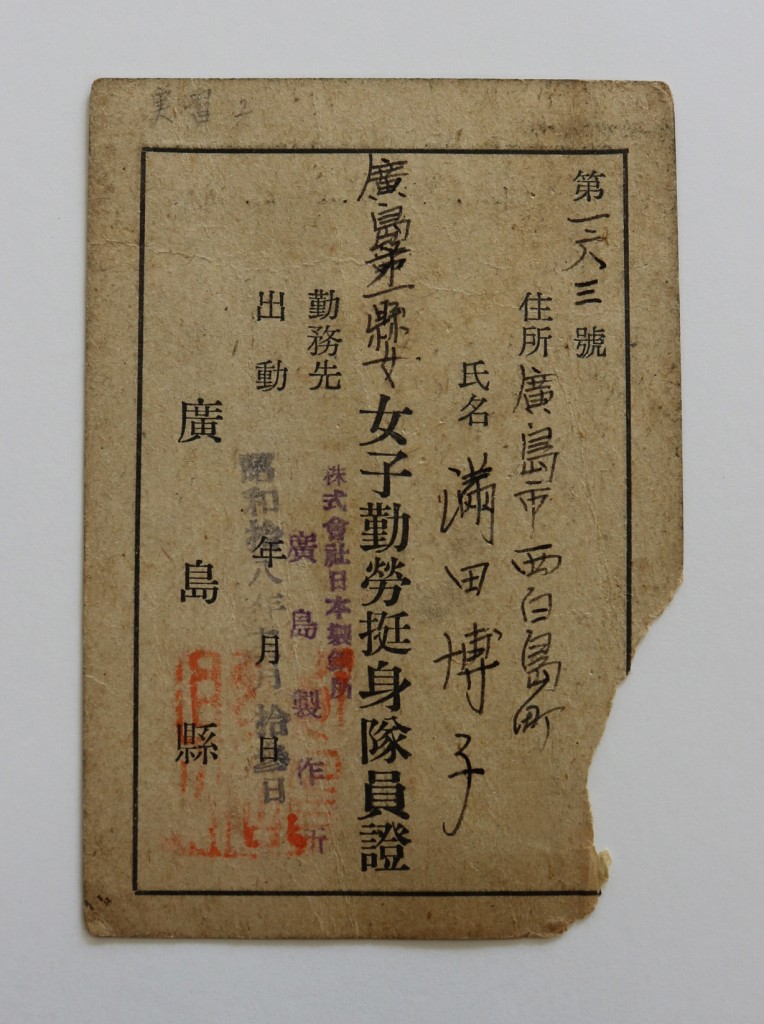 実習 2
第一六三號
住所 廣島市西白島町
氏名 満田博子
廣島第一縣女女子勤勞挺身隊員證
勤務先 株式會社日本製鋼所
廣島製作所
出動 年 月 日
昭和拾八年 月拾 日
廣島縣